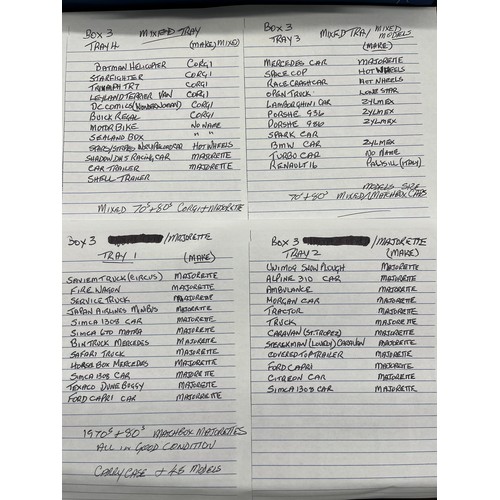 BOX 3 MIXED TRAY
TRAY 4 (MAKE) MIXED
BATMAN HELICOPTER CORGI
STARFIGHTER CORGI
TRIUMPH TR7 CORGI
LEYLAND TERRIER VAN CORGI
DC COMICS (WONDERWOMAN) CORGI
BUICK REGAL CORGI
MOTOR BIKE NO NAME
SEALAND BOX " "
HOTWHEELS
SHADOW DN5 RACING CAR MAJORETTE
CAR TRAILER MAJORETTE
SHELL TRAILER
MIXED 70S + 80S CORGI + MAJORETTE
BOX 3 MIXED TRAY / MIXED MODELS
TRAY 3 (MAKE)
MERCEDES CAR MAJORETTE
SPACE COP HOTWHEELS
RACE CRASH CAR HOTWHEELS
OPEN TRUCK LONE STAR
LAMBORGHINI CAR ZYLMEX
PORSHE 936 ZYLMEX
PORSHE 936 ZYLMEX
SPARK CAR
BMW CAR ZYLMEX
TURBO CAR NO NAME
RENAULT 16 (ITALY)
MODELS SIZE
70S + 80S MIXED/MATCHBOX CARS
BOX 3 /MAJORETTE
TRAY 1 (MAKE)
SAVIEM TRUCK (CIRCUS) MAJORETTE
FIRE WAGON MAJORETTE
SERVICE TRUCK MAJORETTE
JAPAN AIRLINES MINIBUS MAJORETTE
SIMCA 1308 CAR MAJORETTE
SIMCA GTO MATRA MAJORETTE
BIN TRUCK MERCEDES MAJORETTE
SAFARI TRUCK MAJORETTE
HORSE BOX MERCEDES MAJORETTE
SIMCA 1308 CAR MAJORETTE
TEXACO DUNE BUGGY MAJORETTE
FORD CAPRI CAR MAJORETTE
1970S + 80S MATCHBOX MAJORETTES
ALL IN GOOD CONDITION
CARRY CASE + 48 MODELS
BOX 3 /MAJORETTE
TRAY 2 (MAKE)
UNIMOG SNOW PLOUGH MAJORETTE
ALPINE 310 CAR MAJORETTE
AMBULANCE MAJORETTE
MORGAN CAR MAJORETTE
TRACTOR MAJORETTE
TRUCK MAJORETTE
CARAVAN (ST. TROPEZ) MAJORETTE
CARAVAN MAJORETTE
COVERED TOP TRAILER MAJORETTE
FORD CAPRI MAJORETTE
CITROEN CAR MAJORETTE
SIMCA 1308 CAR MAJORETTE